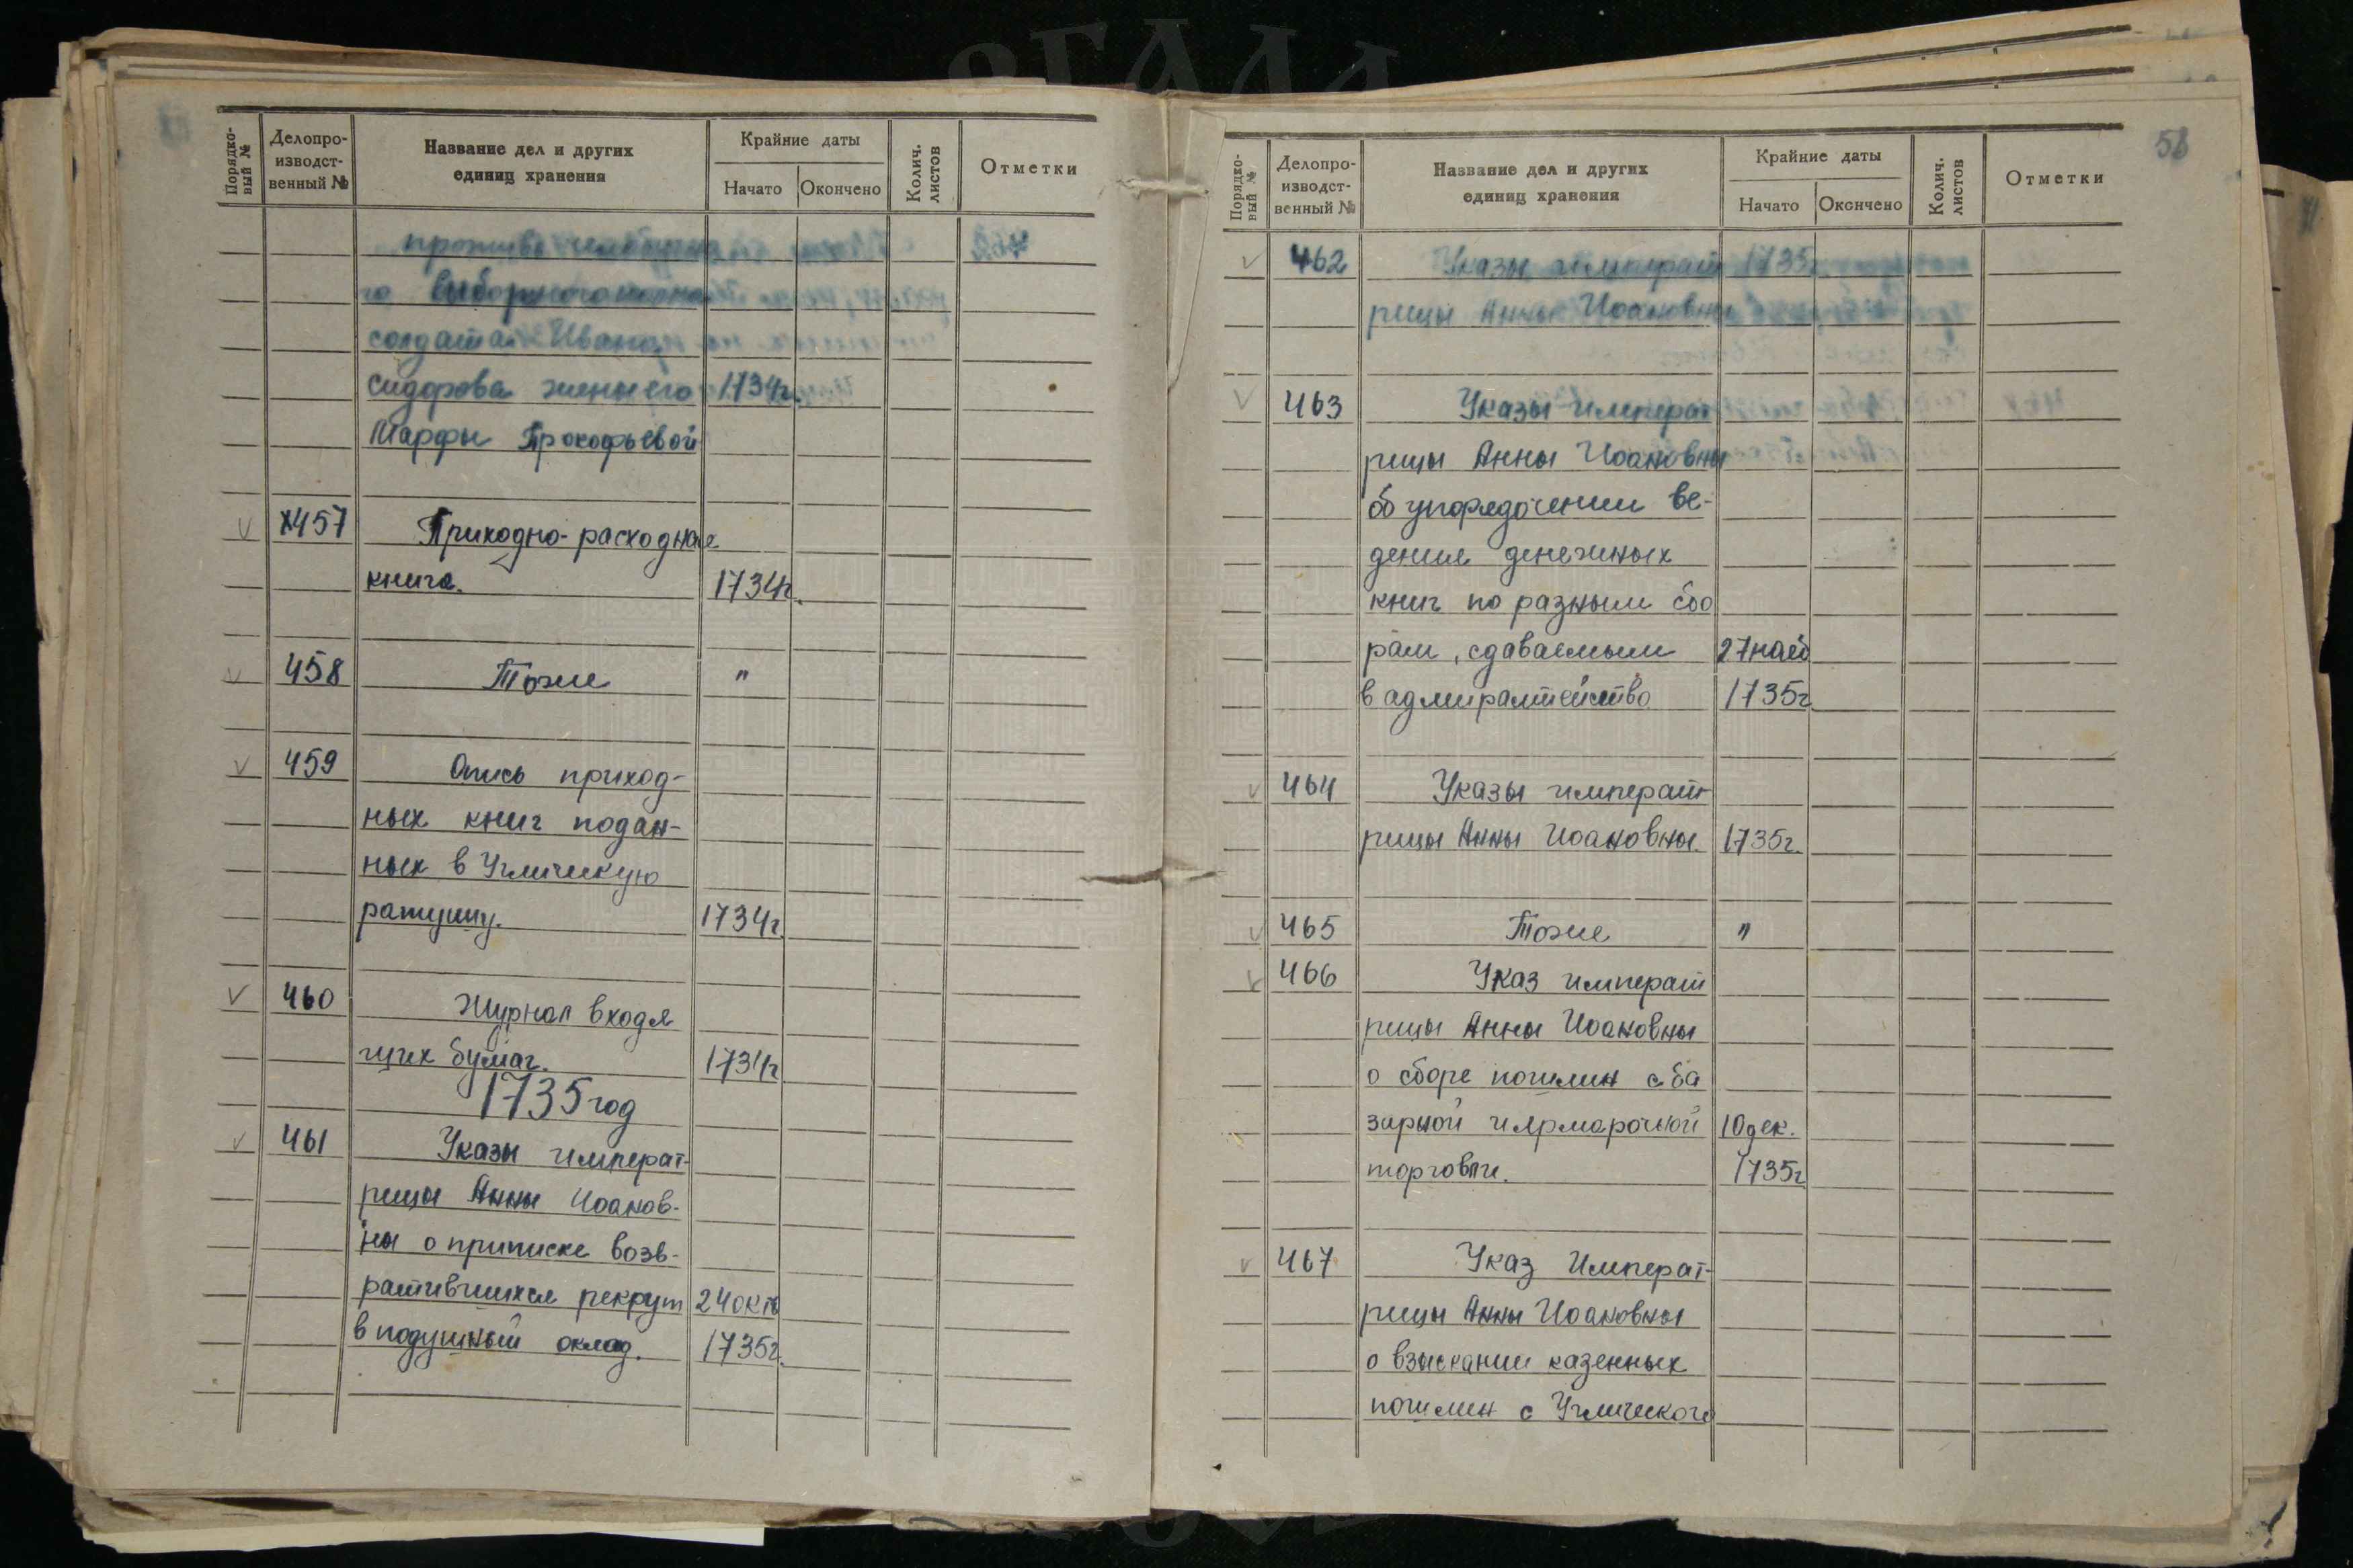 Порядко-
вый №
Делопро-
изводст-
венный №
Название дел и других
единиц хранения
Крайние даты
Начато
Окончено
Колич.
листов
Отметки
солдата Ивана
Сидорова жены его 1734г.
Марфы Прокофьевой
457 Приходно-расходная
книга. 1734г.
458 Тоже "
459 Опись приход-
ных книг подан-
ных в Угличскую
ратушу. 1734г.
460 Журнал входя
щих бумаг. 1734г
1735 год
461 Указы императ-
рицы Анны Иоанов-
ны о приписке возв-
ратившихся рекрут 24 окт
в подушный оклад. 1735г.
58
Порядко-
вый №
Делопро-
изводст-
венный №
Название дел и других
единиц хранения
Крайние даты
Начато
Окончено
Колич.
листов
Отметки
462 Указы императ 1735
рицы Анны Иоановны
463 Указы императ
рицы Анны Иоановны
об упорядочении ве-
дения денежных
книг по разным сбо
рам, сдаваемым 27 наяб
в адмиралтейство 1735г.
464 Указы императ
рицы Анны Иоановны. 1735г.
465 Тоже "
466 Указ императ
рицы Анны Иоановны
о сборе пошлин с ба
зарной и ярмарочной 10 дек.
торговли. 1735г
467 Указ Императ-
рицы Анны Иоановны
о взыскании казенных
пошлин с Угличского